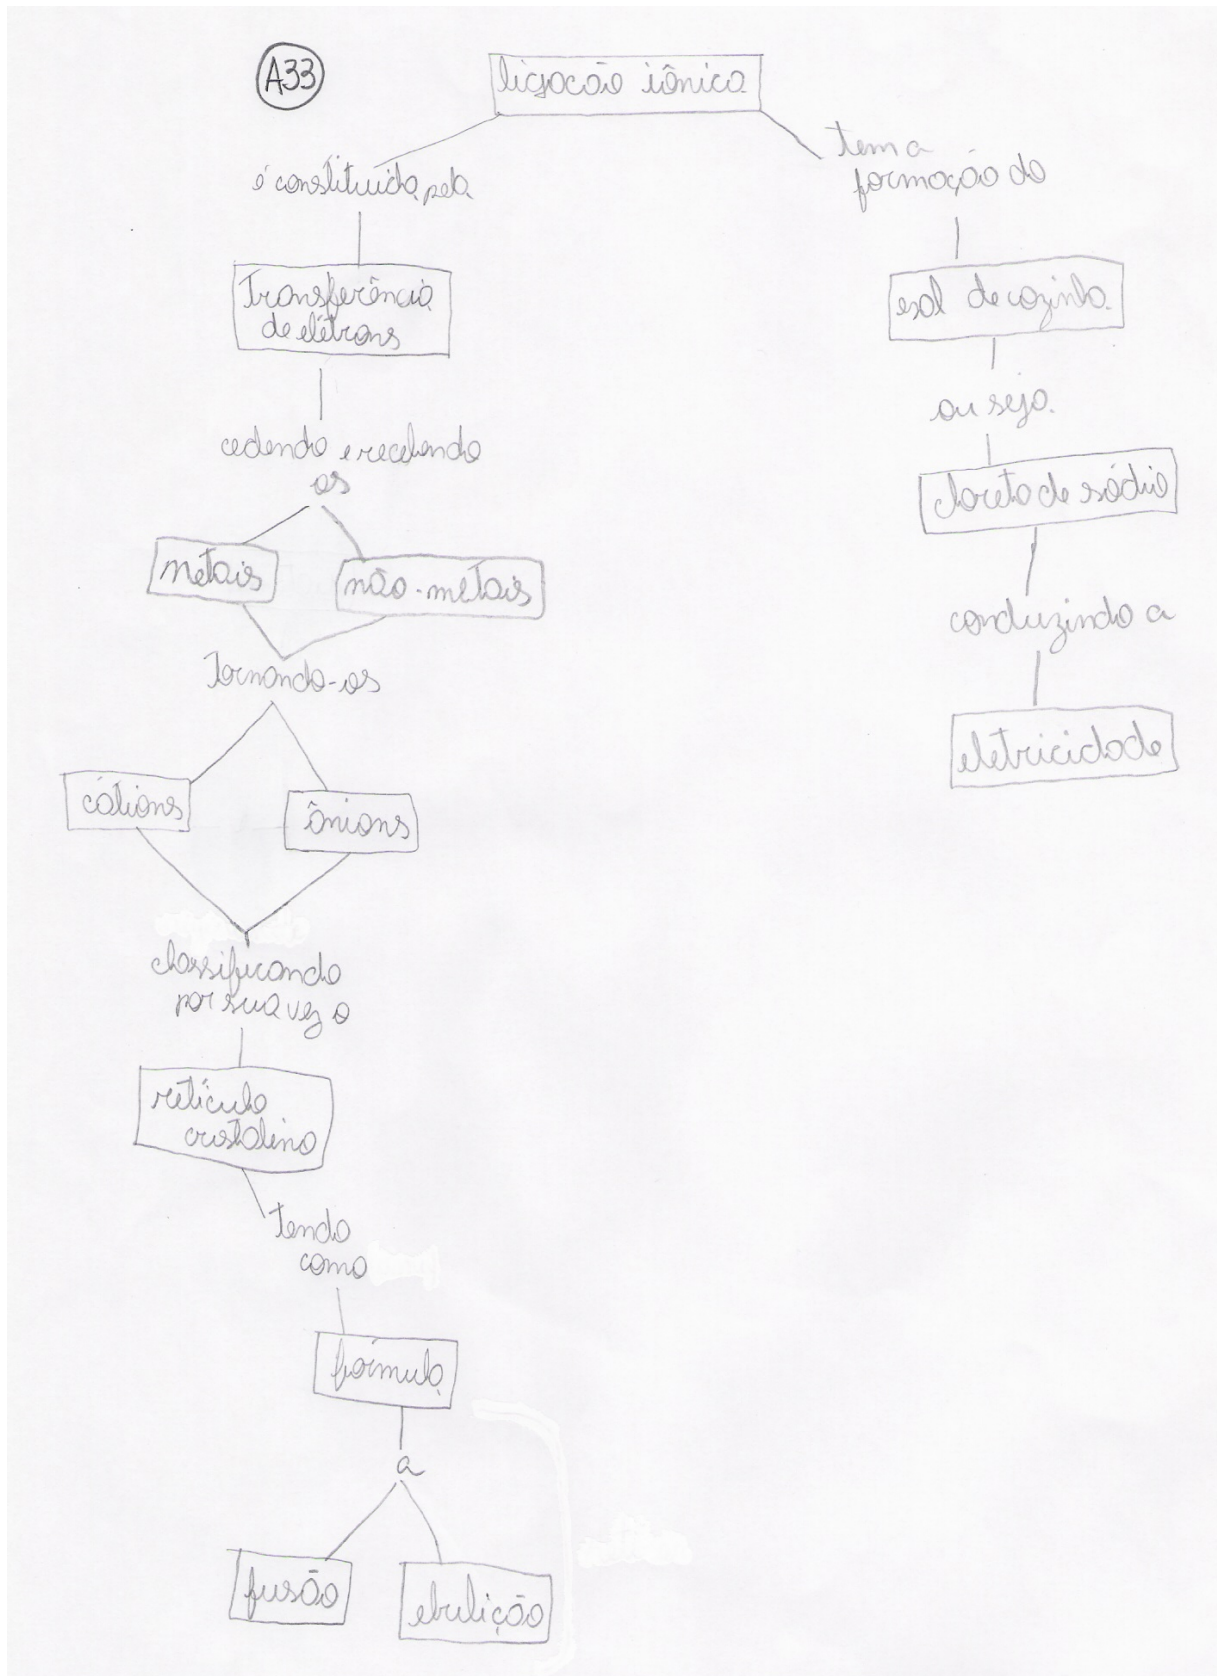 A33
ligação iônica
é constituida pela
Transferência
de elétrons
cedendo e recebendo
os
metais
não-metais
Tornando-os
cátions
ânions
classificando
por sua vez o
retículo
cristalino
tendo
como
fórmula
a
fusão
ebulição
tem a
formação do
sal de cozinha
ou seja
cloreto de sódio
conduzindo a
eletricidade